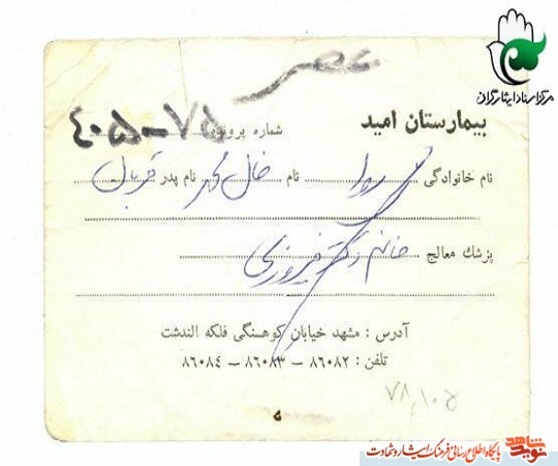 عصر
مرکز اسناد ایثارگران
بیمارستان امید شماره پرونده ۷۵-۴۰۵
نام خانوادگی نام خال محمد نام پدر قربان
پزشك معالج خانم دکتر فیروزی
آدرس : مشهد خیابان کوهسنگی فلکه الندشت
تلفن : ۸۶۰۸۲ – ۸۶۰۸۳ – ۸۶۰۸۴
۵
نوید شاهد
پایگاه اطلاع رسانی فرهنگ ایثار و شهادت